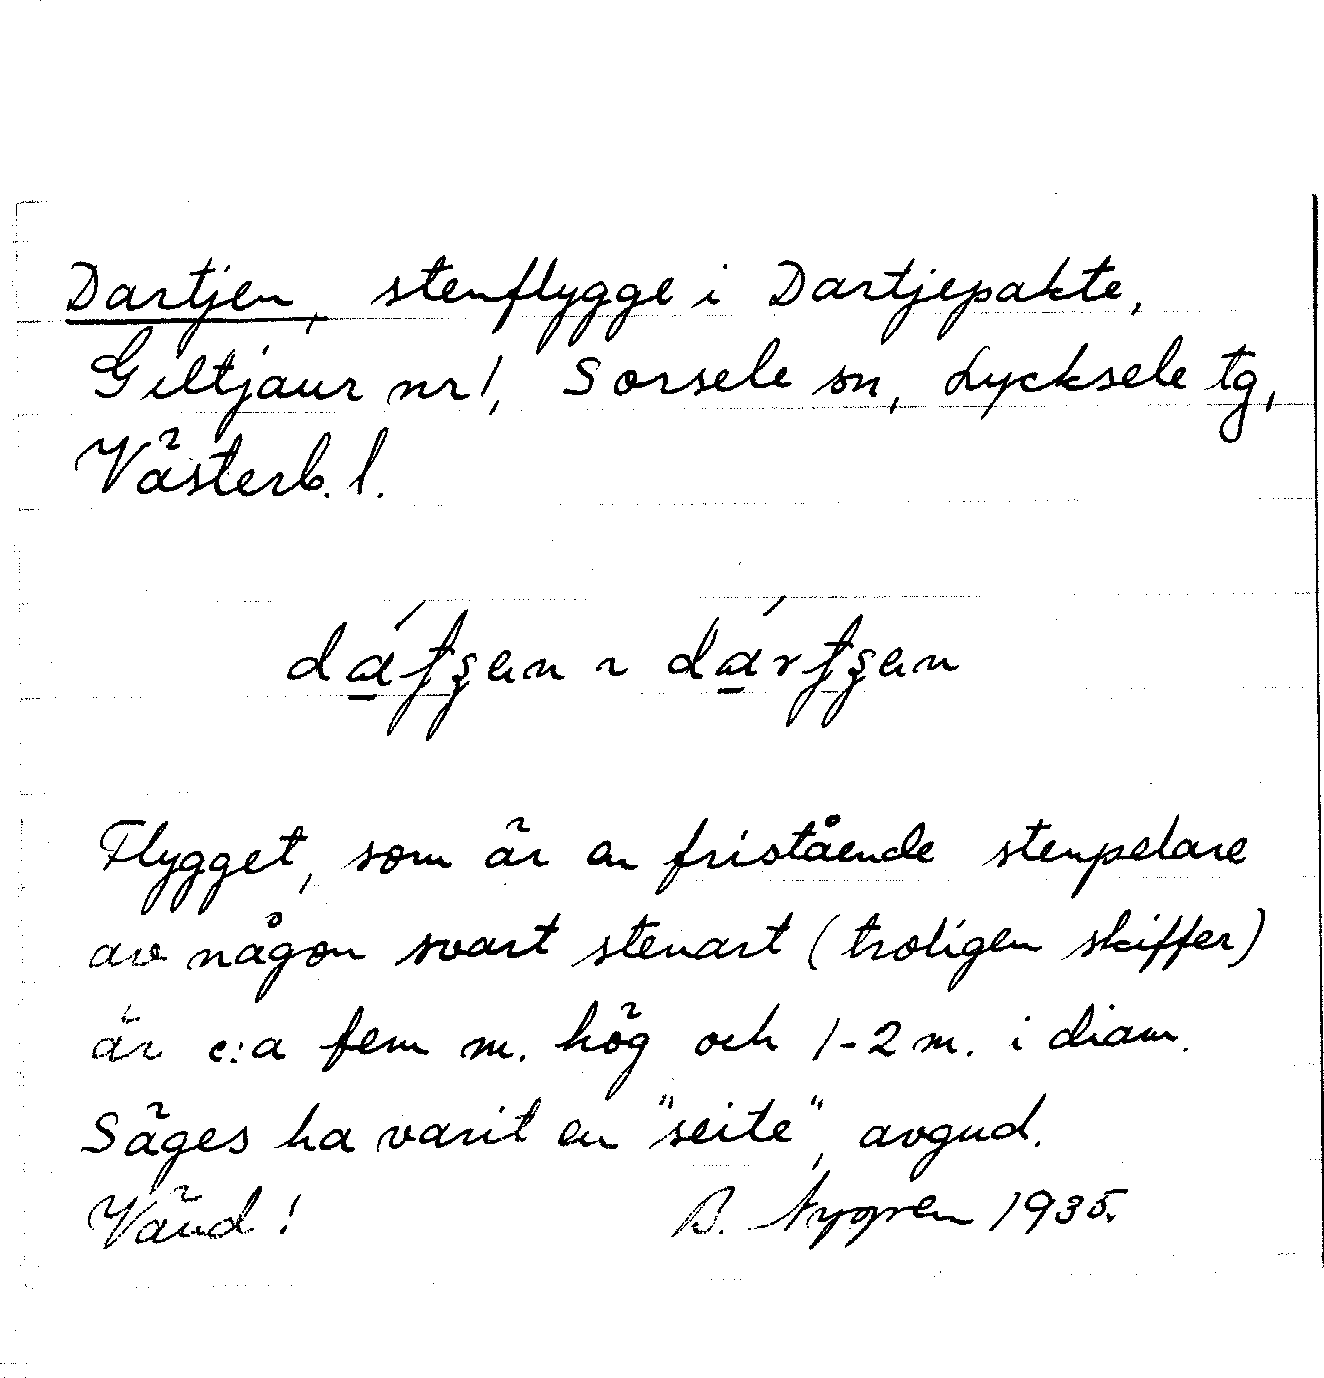 Dartjen, stenflygge i Dartjepakte,
Giltjaur nr 1, Sorsele sn, Lycksele tg,
Västerb. l.
Flygget, som är en fristående stenpelare
av någon svart stenart (troligen skiffer)
är c:a fem m. hög och 1-2 m. i diam.
Säges ha varit en "seite", avgud.
Vänd!
B. Nygren 1935.